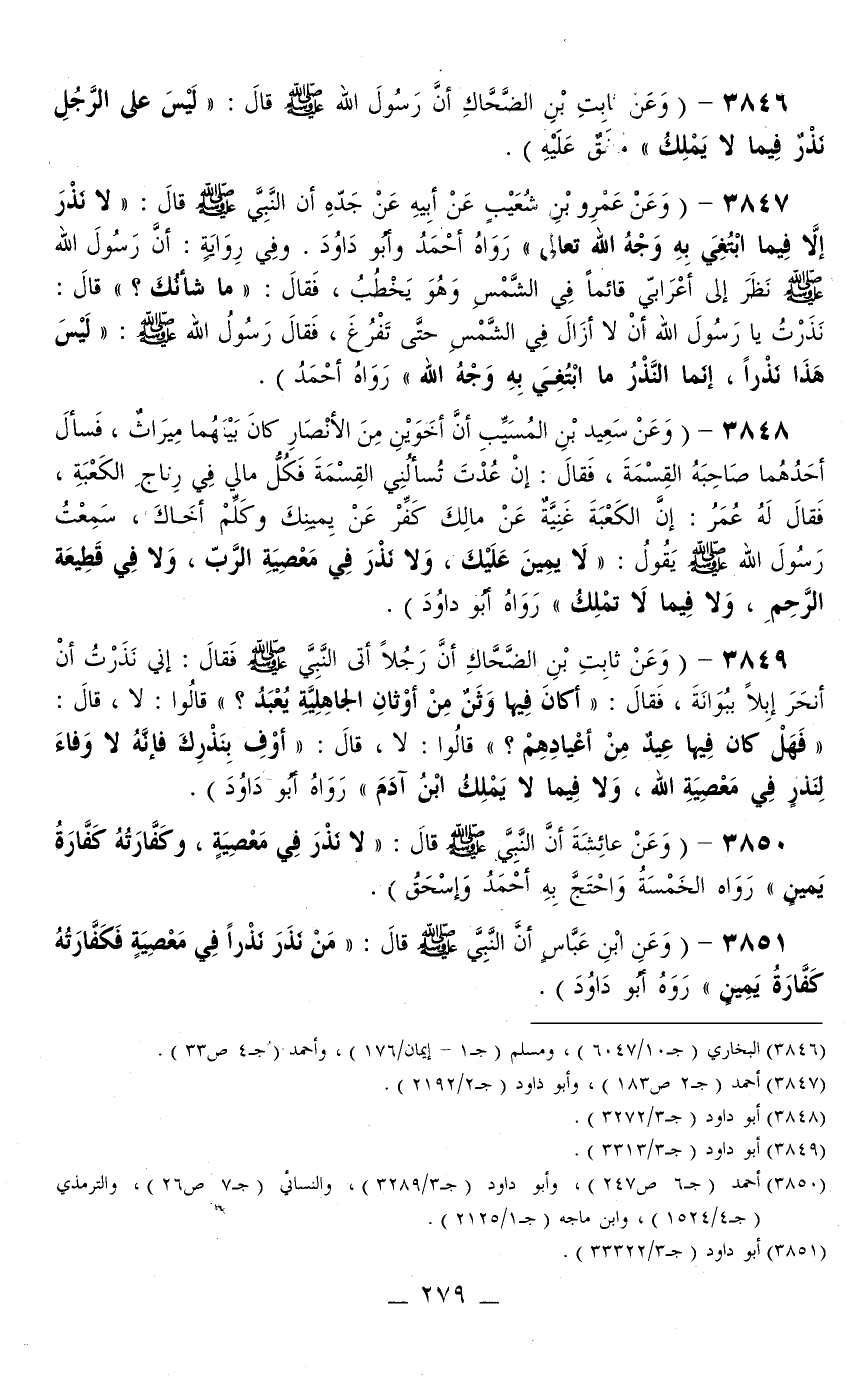 ٣٨٤٦ – ( وَعَنْ ثابِتِ بْنِ الضَّحَّاك أنَّ رَسُولَ الله ﷺ قالَ : « لَيْسَ على الرَّجُلِ
نَذْرٌ فِيما لا يَمْلِكُ » مُتَّفَقٌ عَلَيْهِ ) .
٣٨٤٧ – ( وَعَنْ عَمْرِو بْنِ شُعَيْبٍ عَنْ أبيهِ عَنْ جَدّهِ أن النَّبِيَّ ﷺ قالَ : « لا نَذْرَ
إلَّا فِيما ابْتُغِيَ بِهِ وَجْهُ الله تعالى » رَوَاهُ أحْمَدُ وأبُو دَاوُدَ . وفِي رِوَايَةٍ : أنَّ رَسُولَ الله
ﷺ نَظَرَ إلى أعْرَابيّ قائماً فِي الشَّمْسِ وَهُوَ يَخْطُبُ ، فَقالَ : « ما شأنُكَ ؟ » قالَ :
نَذَرْتُ يا رَسُولَ الله أنْ لا أزَالَ فِي الشَّمْسِ حتَّى تَفْرُغَ ، فَقالَ رَسُولُ الله ﷺ : « لَيْسَ
هَذَا نَذْراً ، إنَما النَّذْرُ ما ابْتُغِيَ بِهِ وَجْهُ الله » رَوَاهُ أحْمَدُ ) .
٣٨٤٨ – ( وَعَنْ سَعِيد بْنِ المُسَيِّبِ أنَّ أخَوَيْنِ مِنَ الأنْصَارِ كانَ بَيْنَهُما مِيرَاثٌ ، فَسألَ
أحَدُهُما صَاحِبَهُ القِسْمَةَ ، فَقالَ : إنْ عُدْتَ تُسألُنِي القِسْمَةَ فَكُلُّ مالي فِي رِتاج الكَعْبَةِ ،
فَقالَ لَهُ عُمَرُ : إنَّ الكَعْبَةَ غَنِيَّةٌ عَنْ مالِكَ كَفِّرْ عَنْ يمِينِكَ وكَلِّمْ أخَاكَ ، سَمِعْتُ
رَسُولَ الله ﷺ يَقُولُ : « لَا يمِينَ عَلَيْكَ ، وَلا نَذْرَ فِي مَعْصِيَةِ الرَّبّ ، وَلا فِي قَطِيعَة
الرَّحِمِ ، وَلا فِيما لَا تمْلِكُ » رَوَاهُ أبُو داوُدَ ) .
٣٨٤٩ – ( وَعَنْ ثابِتِ بْنِ الضَّحَّاكِ أنَّ رَجُلاً أتى النَّبِيَّ ﷺ فَقالَ : إني نَذَرْتُ أنْ
أنحَرَ إبِلاً بِبُوَانَةَ ، فَقالَ : « أكانَ فِيها وَثَنٌ مِنْ أوْثانِ الجاهِلِيَّةِ يُعْبَدُ ؟ » قالُوا : لا ، قالَ :
« فَهَلْ كان فِيها عِيدٌ مِنْ أعْيادِهِمْ ؟ » قالُوا : لا ، قالَ : « أوْفِ بِنَذْرِكَ فإنَّهُ لا وَفاءَ
لِنَذرٍ فِي مَعْصِيَةِ الله ، وَلا فِيما لا يَمْلِكُ ابْنُ آدَمَ » رَوَاهُ أبُو دَاوُدَ ) .
٣٨٥٠ – ( وَعَنْ عائِشَةَ أنَّ النَّبِيَّ ﷺ قالَ : « لا نَذْرَ فِي مَعْصِيَةٍ ، وكَفَّارَتُهُ كَفَّارَةُ
يَمينٍ » رَوَاه الخَمْسَةُ وَاحْتَجَّ بِهِ أحْمَدُ وَإسْحَقُ ) .
٣٨٥١ – ( وَعَنِ ابْنِ عَبَّاسٍ أنَّ النَّبِيَّ ﷺ قالَ : « مَنْ نَذَرَ نَذْراً فِي مَعْصِيَةٍ فَكَفَّارَتُهُ
كَفَّارَةُ يَمِينٍ » رَوَهُ أبُو دَاوُدَ ) .
(٣٨٤٦) البخاري ( جـ٦٠٤٧/١٠ ) ، ومسلم ( جـ١ – إيمان/١٧٦ ) ، وأحمد ( جـ٤ ص٣٣ ) .
(٣٨٤٧) أحمد ( جـ٢ ص١٨٣ ) ، وأبو داود ( جـ٢١٩٢/٢ ) .
(٣٨٤٨) أبو داود ( جـ٣٢٧٢/٣ ) .
(٣٨٤٩) أبو داود ( جـ٣٣١٣/٣ ) .
(٣٨٥٠) أحمد ( جـ٦ ص٢٤٧ ) ، وأبو داود ( جـ٣٢٨٩/٣ ) ، والنسائي ( جـ٧ ص٢٦ ) ، والترمذي
( جـ١٥٢٤/٤ ) ، وابن ماجه ( جـ٢١٢٥/١ ) .
(٣٨٥١) أبو داود ( جـ٣٣٣٢٢/٣ ) .
— ٢٧٩ —